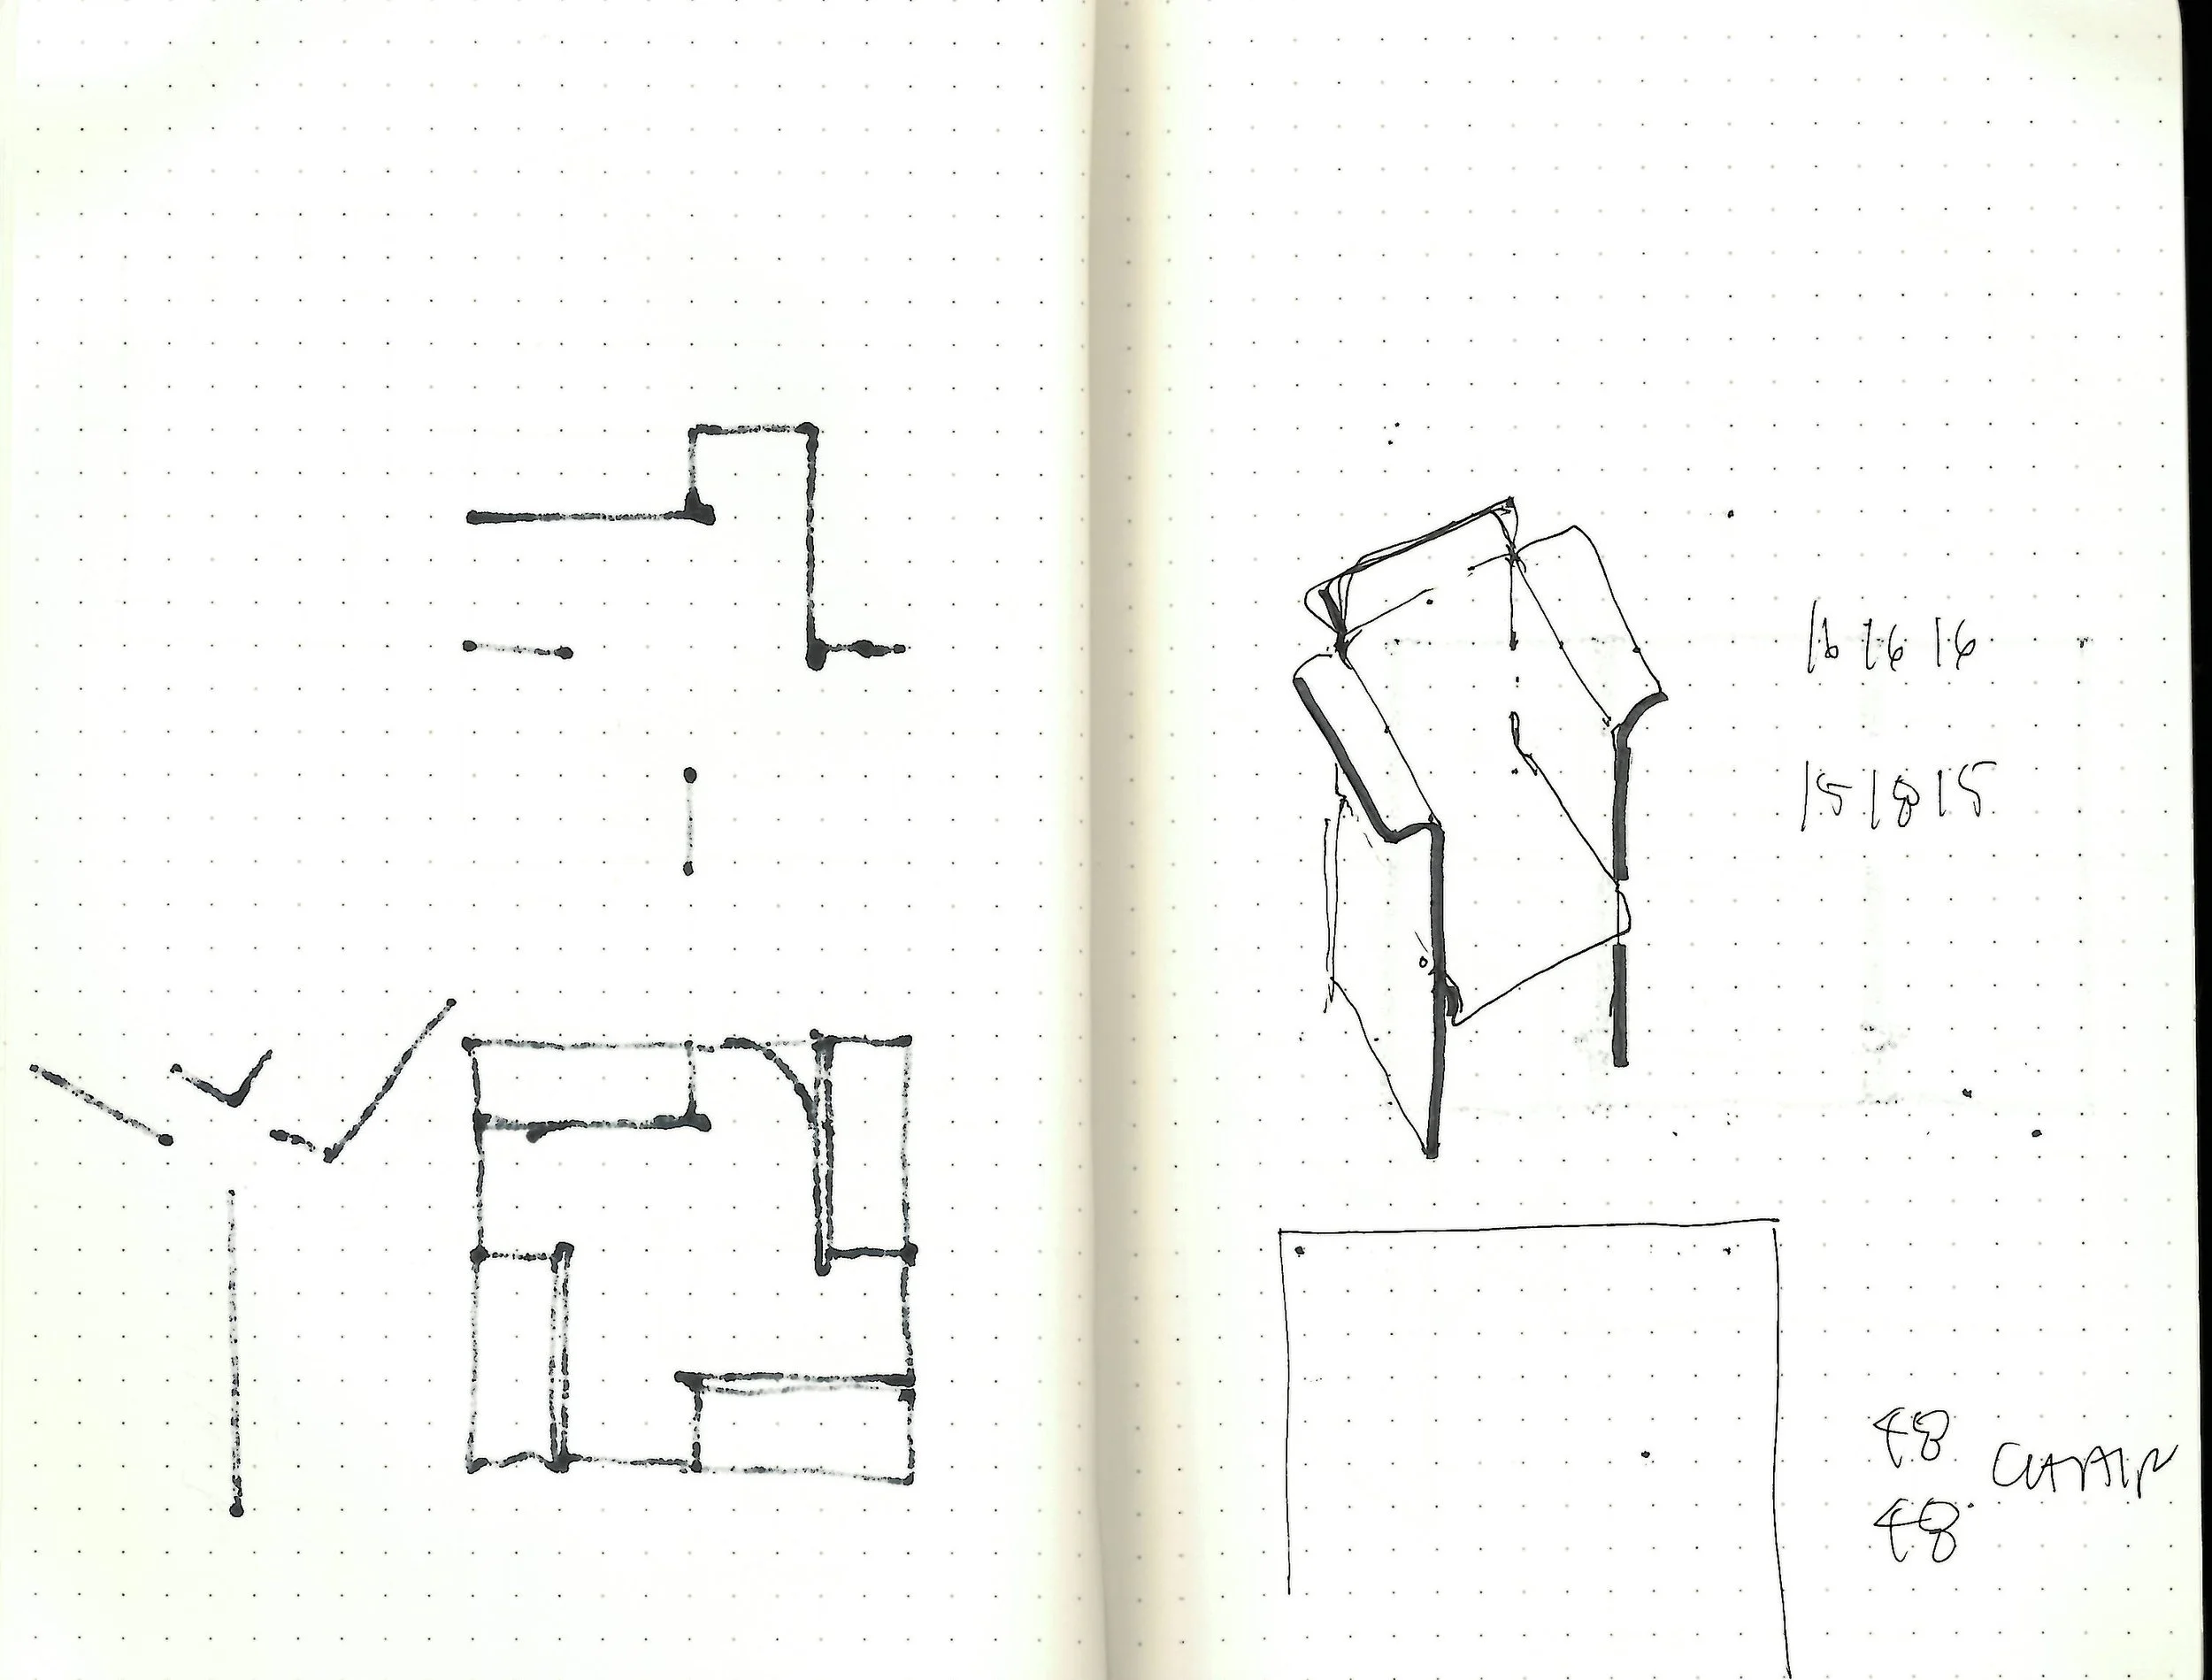 16 16 16
15 18 15
48
CHAIR
48